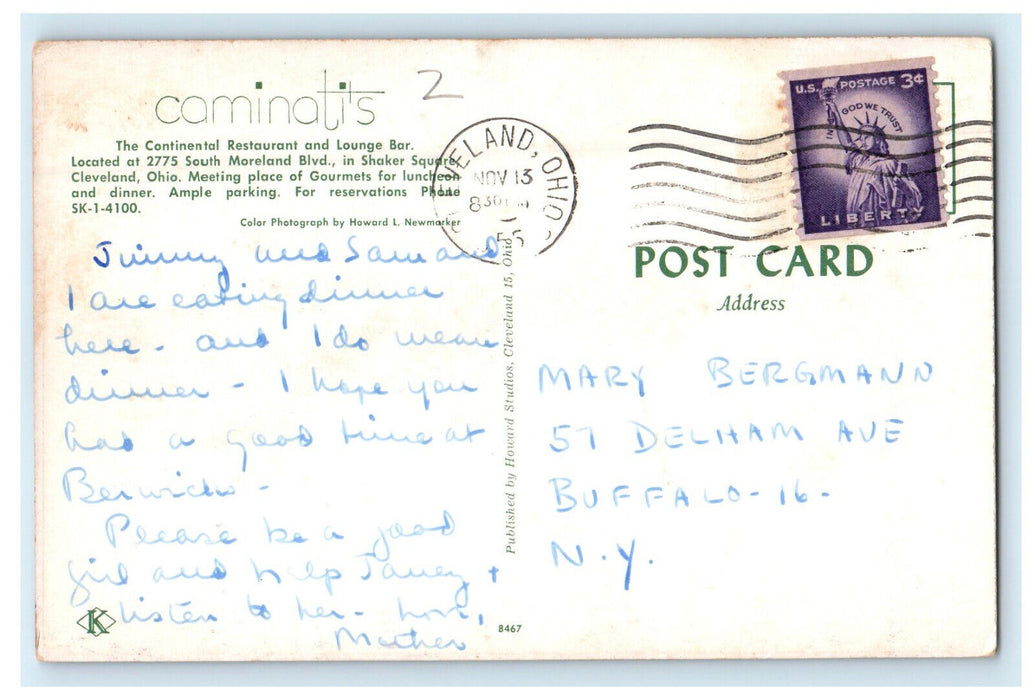 caminati's
2
The Continental Restaurant and Lounge Bar.
Located at 2775 South Moreland Blvd., in Shaker Square,
Cleveland, Ohio. Meeting place of Gourmets for luncheon
and dinner. Ample parking. For reservations Phone
SK-1-4100.
Color Photograph by Howard L. Newmarker
Jimmy and Sam and
I are eating dinner
here - and I do mean
dinner - I hope you
had a good time at
Berwicks -
Please be a good
girl and help Janey +
listen to her - Love,
Mother
K
8467
Published by Howard Studios, Cleveland 15, Ohio
CLEVELAND, OHIO
NOV 13
8 30 PM
55
U.S. POSTAGE 3¢
IN GOD WE TRUST
LIBERTY
POST CARD
Address
MARY BERGMANN
57 DELHAM AVE
BUFFALO - 16 -
N.Y.